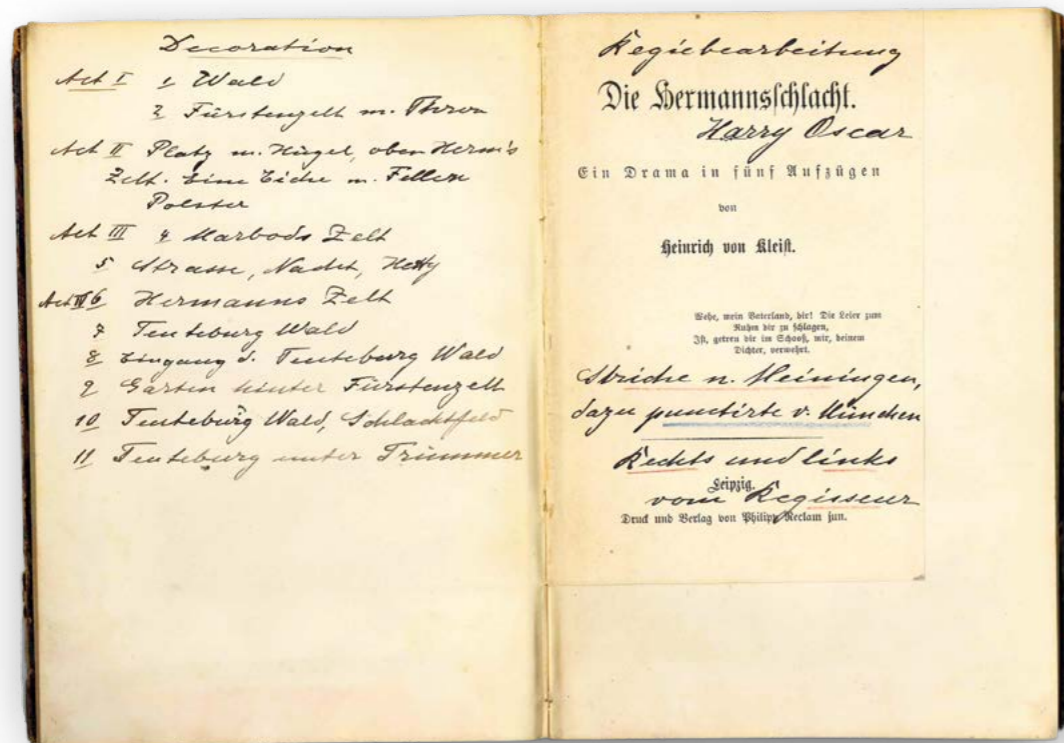 Decoration
Act I 1 Wald
2 Fürstenzelt m. Thron
Act II Platz m. Hügel, oben Herm's
Zelt. Eine Eiche m. Fellen
Polster
Act III 4 Marbods Zelt
5 Strasse, Nacht, Hetty
Act IV 6 Hermanns Zelt
7 Teuteburg Wald
8 Eingang d. Teuteburg Wald
9 Garten hinter Fürstenzelt
10 Teuteburg Wald, Schlachtfeld
11 Teuteburg unter Trümmer
Regiebearbeitung
Die Hermannsschlacht.
Harry Oscar
Ein Drama in fünf Aufzügen
von
Heinrich von Kleist.
Wehe, mein Vaterland, dir! Die Leier zum
Ruhm dir zu schlagen,
Ist, getreu dir im Schooß, mir, deinem
Dichter, verwehrt.
Striche n. Meiningen,
dazu punctirte v. München
Rechts und links
Leipzig.
vom Regisseur
Druck und Verlag von Philipp Reclam jun.